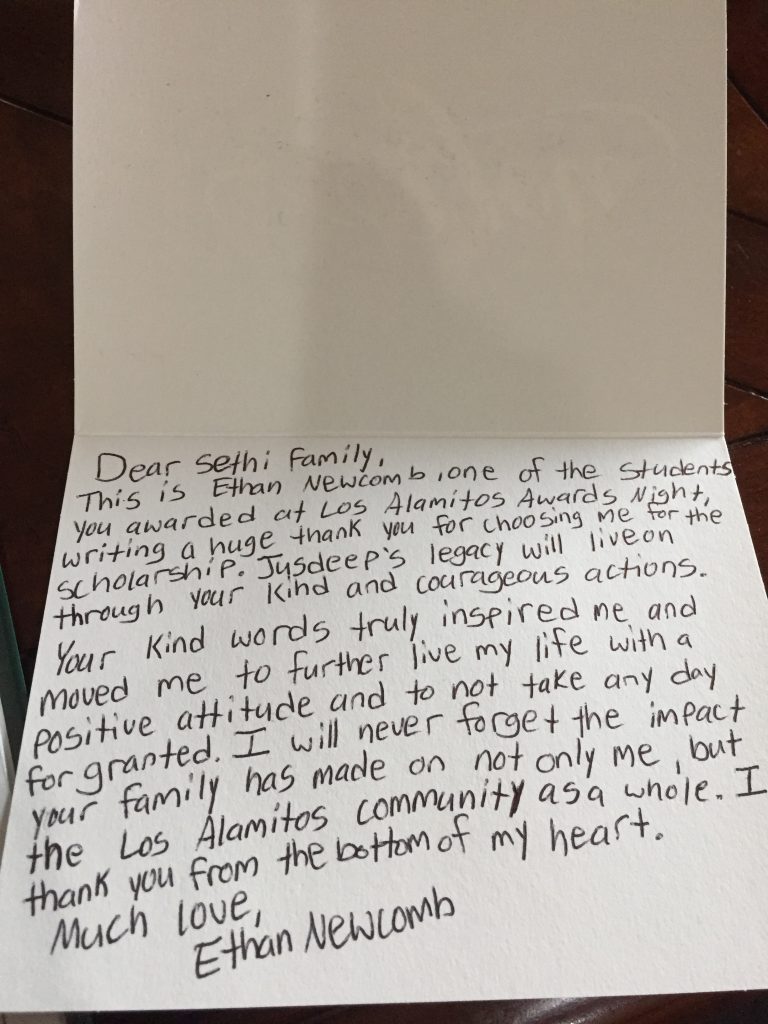 Dear Sethi Family,
This is Ethan Newcomb, one of the students
you awarded at Los Alamitos Awards Night,
writing a huge thank you for choosing me for the
scholarship. Jusdeep's legacy will live on
through your kind and courageous actions.
Your kind words truly inspired me and
moved me to further live my life with a
positive attitude and to not take any day
for granted. I will never forget the impact
your family has made on not only me, but
the Los Alamitos community as a whole. I
thank you from the bottom of my heart.
Much love,
Ethan Newcomb